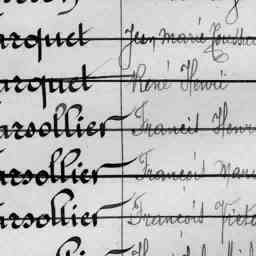 arquet Jean Marie Toussai
arquet René Henri
arsollier Francis Henri
arsollier François Mari
arsollier François Victo